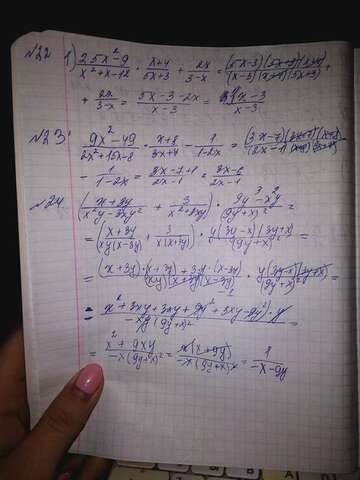 N22 1) \frac{25x^2-9}{x^2+x-12} \cdot \frac{x+4}{5x+3} + \frac{2x}{3-x} = \frac{(5x-3)(5x+3)(x+4)}{(x-3)(x+4)(5x+3)} +
+ \frac{2x}{3-x} = \frac{5x-3-2x}{x-3} = \frac{3x-3}{x-3}
N23 \frac{9x^2-49}{2x^2+15x-8} \cdot \frac{x+8}{3x+7} - \frac{1}{1-2x} = \frac{(3x-7)(3x+7)(x+8)}{(2x-1)(x+8)(3x+7)} -
- \frac{1}{1-2x} = \frac{3x-7+1}{2x-1} = \frac{3x-6}{2x-1}
N24 \left(\frac{x+3y}{x^2y-3xy^2} + \frac{3}{x^2+3xy}\right) \cdot \frac{9y^3-x^2y}{(9y+x)^2} =
= \left(\frac{x+3y}{xy(x-3y)} + \frac{3}{x(x+3y)}\right) \cdot \frac{y(3y-x)(3y+x)}{(9y+x)^2} =
= \frac{(x+3y) \cdot (x+3y)+3y \cdot (x-3y)}{xy(x+3y)(x-3y)} \cdot \frac{y(3y-x)(3y+x)}{(9y+x)^2} =
= \frac{x^2+3xy+3xy+9y^2+3xy-9y^2) \cdot y}{-xy(9y+x)^2} =
= \frac{x^2+9xy}{-x(9y+x)^2} = \frac{x(x+9y)}{-x(9y+x)^2} = \frac{1}{-x-9y}